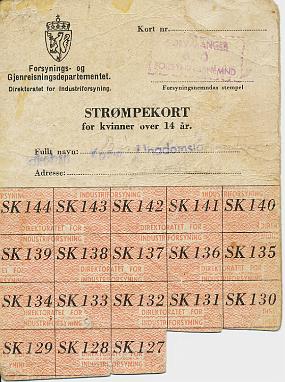 Kort nr.
Forsynings- og
Gjenreisningsdepartementet.
Direktoratet for Industriforsyning.
Forsyningsnemndas stempel
STRØMPEKORT
for kvinner over 14 år.
Fullt navn:
Ungdomsk
Adresse:
INDUSTRIFORSYNING
SK 144 SK 143 SK 142 SK 141 SK 140
DIREKTORATET FOR
INDUSTRIFORSYNING
SK 139 SK 138 SK 137 SK 136 SK 135
DIREKTORATET FOR
INDUSTRIFORSYNING
SK 134 SK 133 SK 132 SK 131 SK 130
DIREKTORATET FOR
INDUSTRIFORSYNING
SK 129 SK 128 SK 127